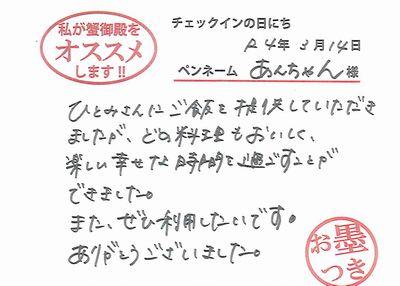 私が蟹御殿を
オススメ
します!!
チェックインの日にち
R4年3月14日
ペンネーム あんちゃん 様
ひとみさんにご飯を提供していただき
ましたが、どの料理もおいしく、
楽しい幸せな時間を過ごすことが
できました。
また、ぜひ利用したいです。
ありがとうございました。
お墨
つき